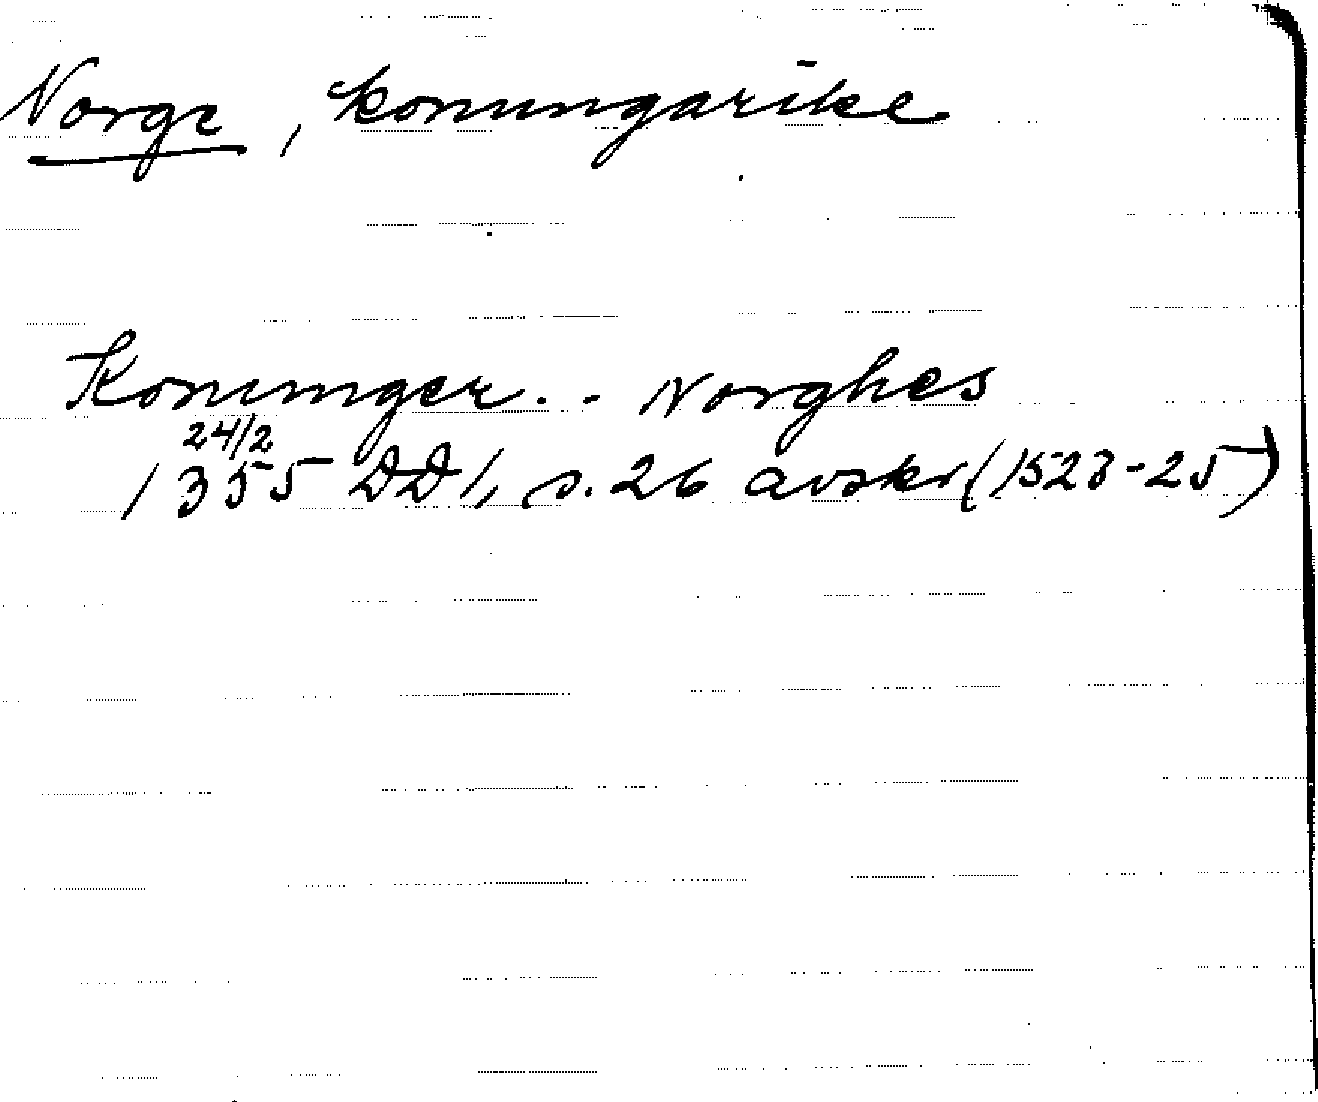 Norge, konungarike
Konunger. . Norghes
24/2
1355 DD1, s. 26 avskr (1523-25)